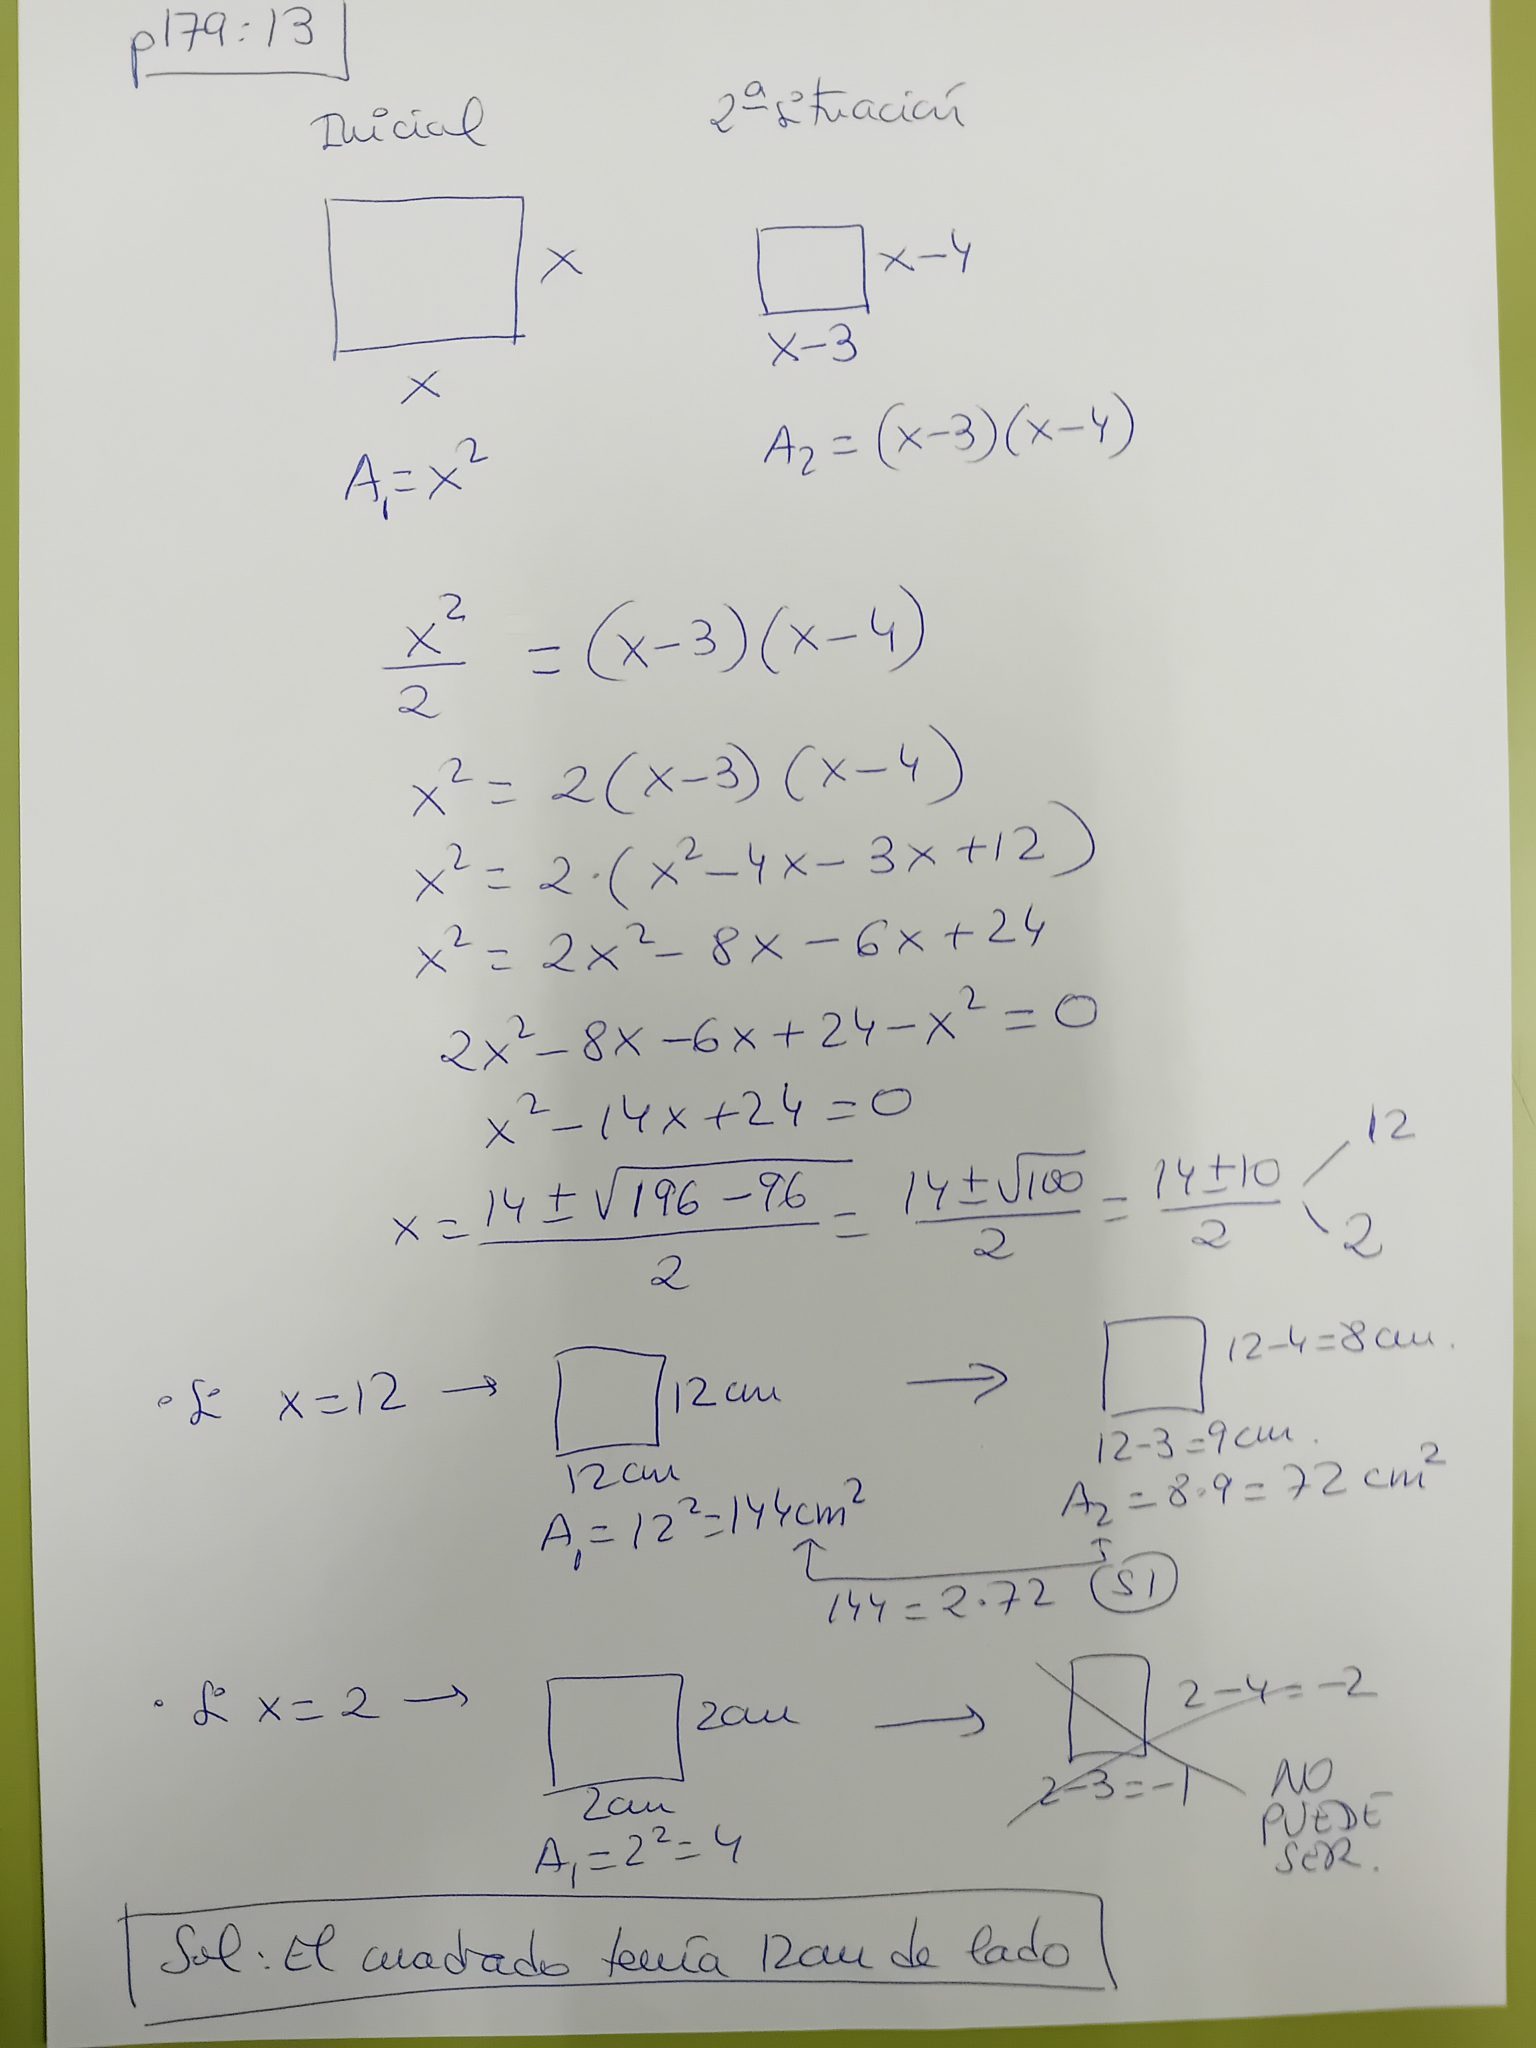 p179:13
Inicial
2ª situación
x
x-4
x
x-3
A₁=x²
A₂=(x-3)(x-4)
x²/2 = (x-3)(x-4)
x² = 2(x-3)(x-4)
x² = 2·(x²-4x-3x+12)
x² = 2x²-8x-6x+24
2x²-8x-6x+24-x²=0
x²-14x+24=0
x = (14±√(196-96))/2 = (14±√100)/2 = (14±10)/2
12
2
· Si x=12 → 12cm → 12-4=8cm.
12cm
12-3=9cm.
A₁=12²=144cm²
A₂=8·9=72cm²
144=2·72 SI
· Si x=2 → 2cm → 2-4=-2
2cm
2-3=-1
NO
PUEDE
SER.
A₁=2²=4
Sol: El cuadrado tenía 12cm de lado